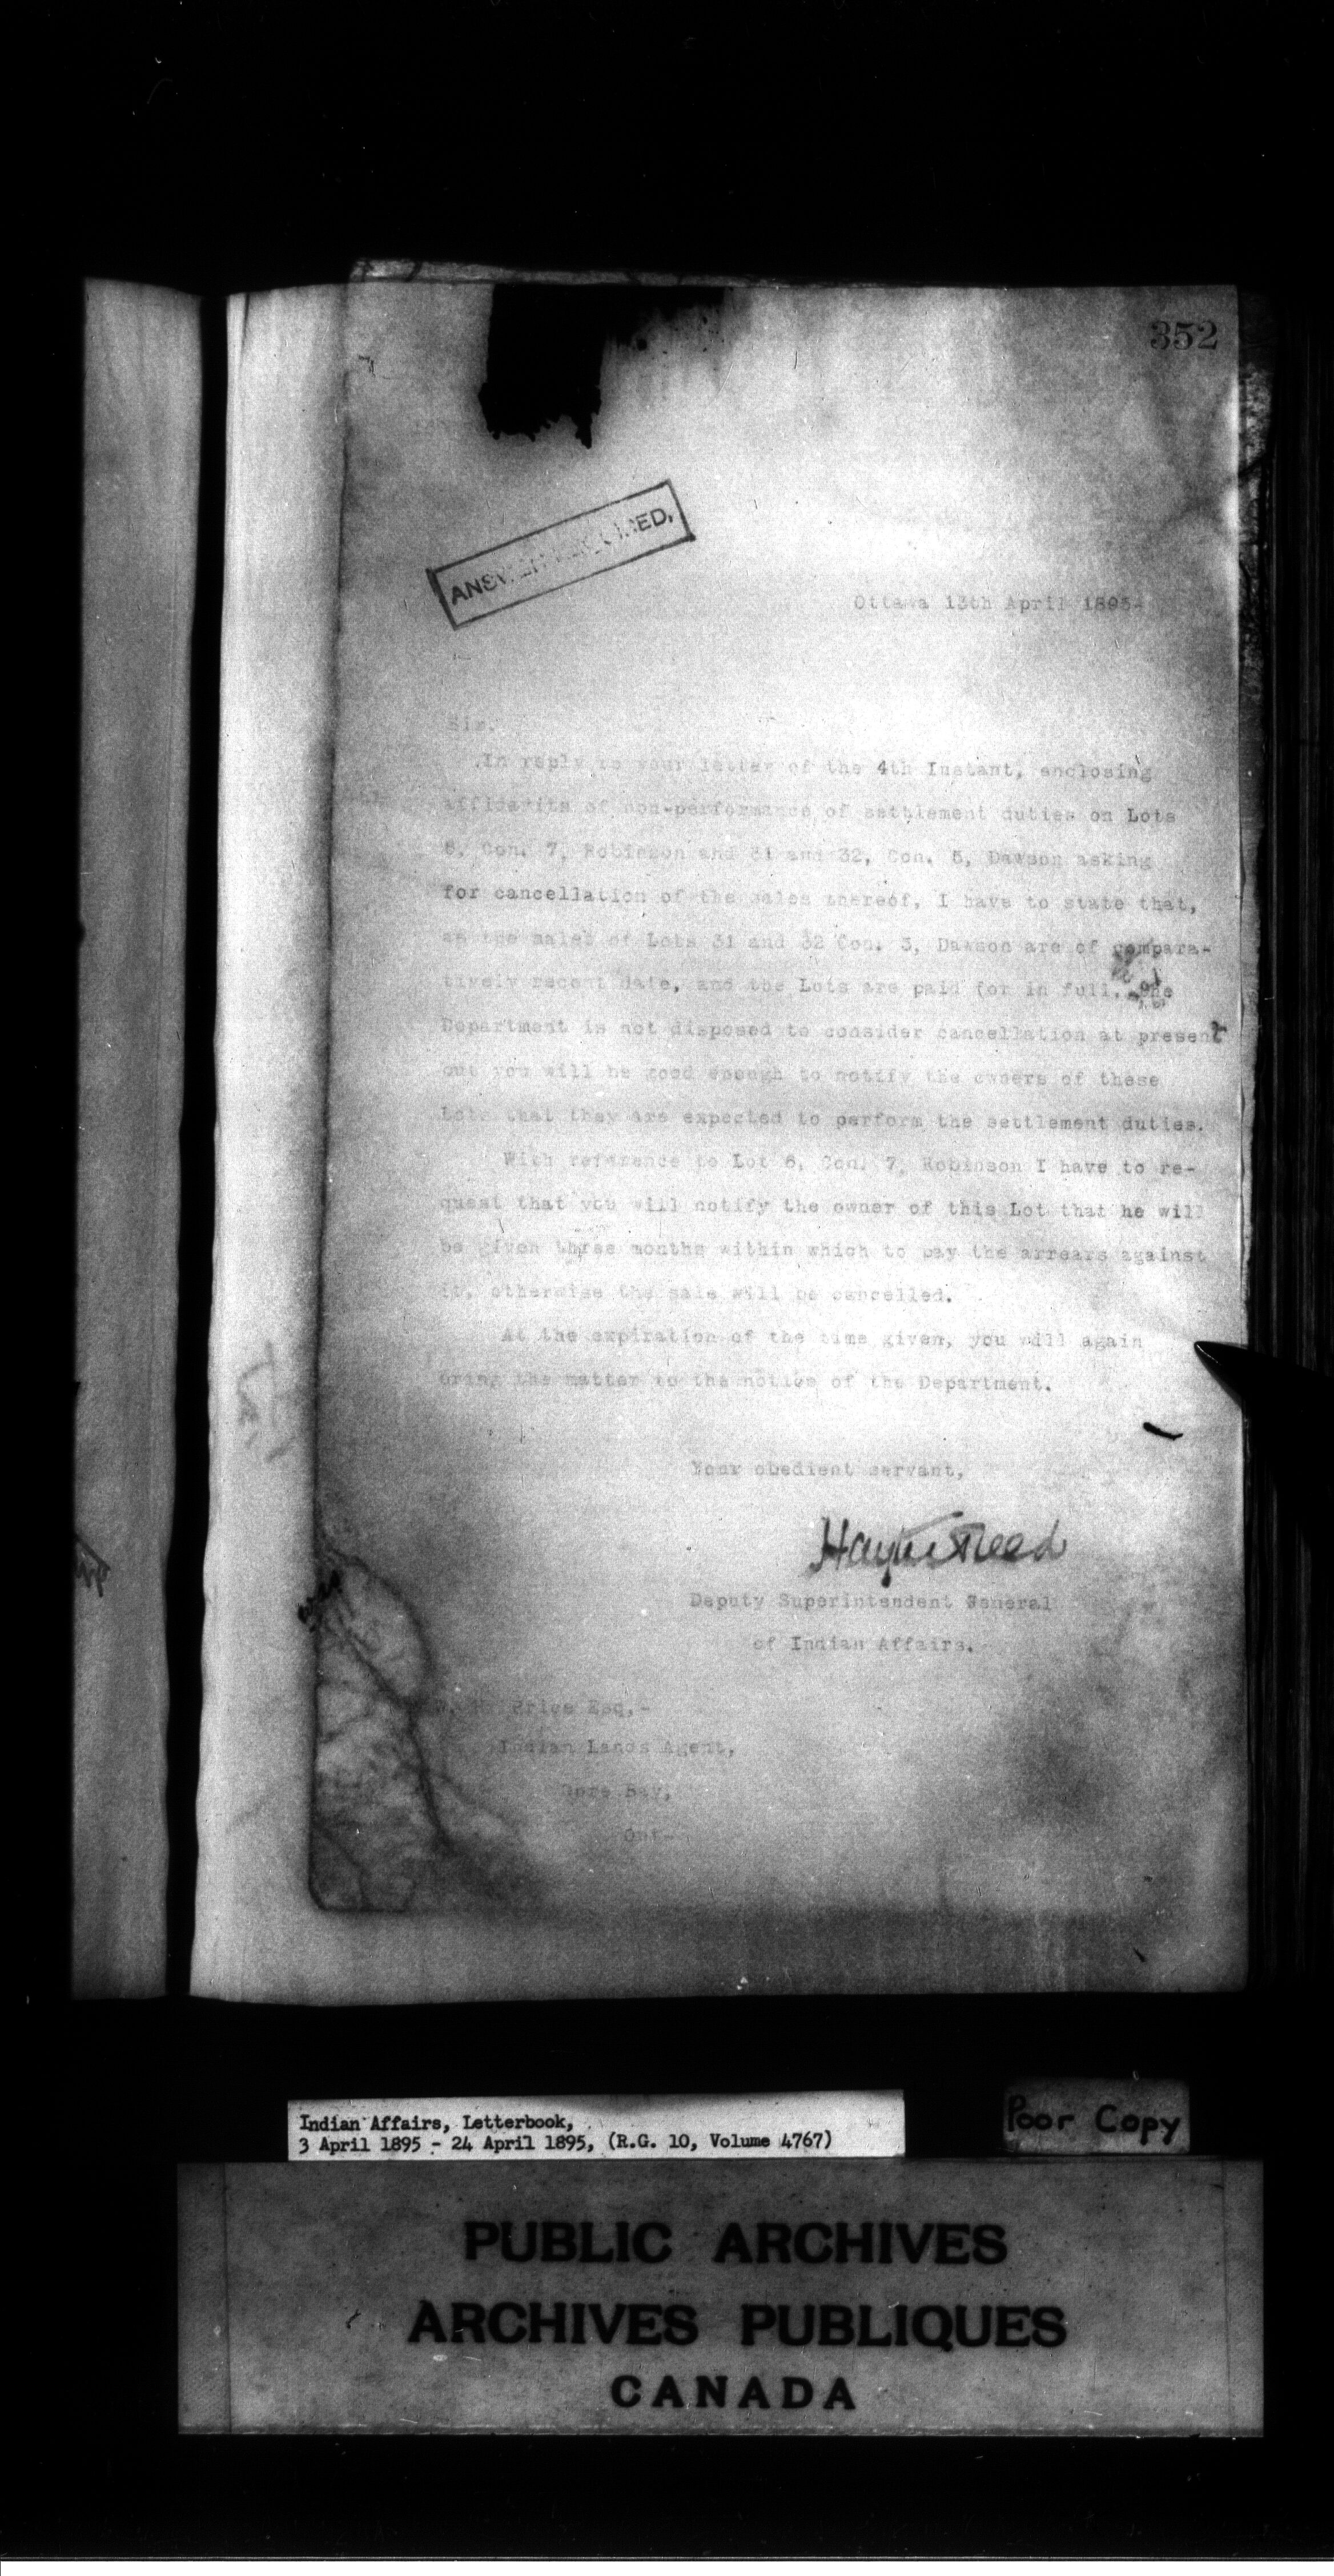 352
ANSWER REQUIRED,
Ottawa 13th April 1895-
Sir.
In reply to your letter of the 4th Instant, enclosing
affidavits of non-performance of settlement duties on Lots
6, Con. 7, Robinson and 31 and 32, Con. 5, Dawson asking
for cancellation of the sales thereof, I have to state that,
as the sales of Lots 31 and 32 Con. 3, Dawson are of compara-
tively recent date, and the Lots are paid for in full, the
Department is not disposed to consider cancellation at present
but you will be good enough to notify the owners of these
Lots that they are expected to perform the settlement duties.
With reference to Lot 6, Con. 7, Robinson I have to re-
quest that you will notify the owner of this Lot that he will
be given three months within which to pay the arrears against
it, otherwise the sale will be cancelled.
At the expiration of the time given, you will again
bring the matter to the notice of the Department.
Your obedient servant,
Hayter Reed
Deputy Superintendent General
of Indian Affairs.
W. Price Esq,-
Indian Lands Agent,
Gore Bay,
Ont-
Indian Affairs, Letterbook,
3 April 1895 - 24 April 1895, (R.G. 10, Volume 4767)
Poor Copy
PUBLIC ARCHIVES
ARCHIVES PUBLIQUES
CANADA